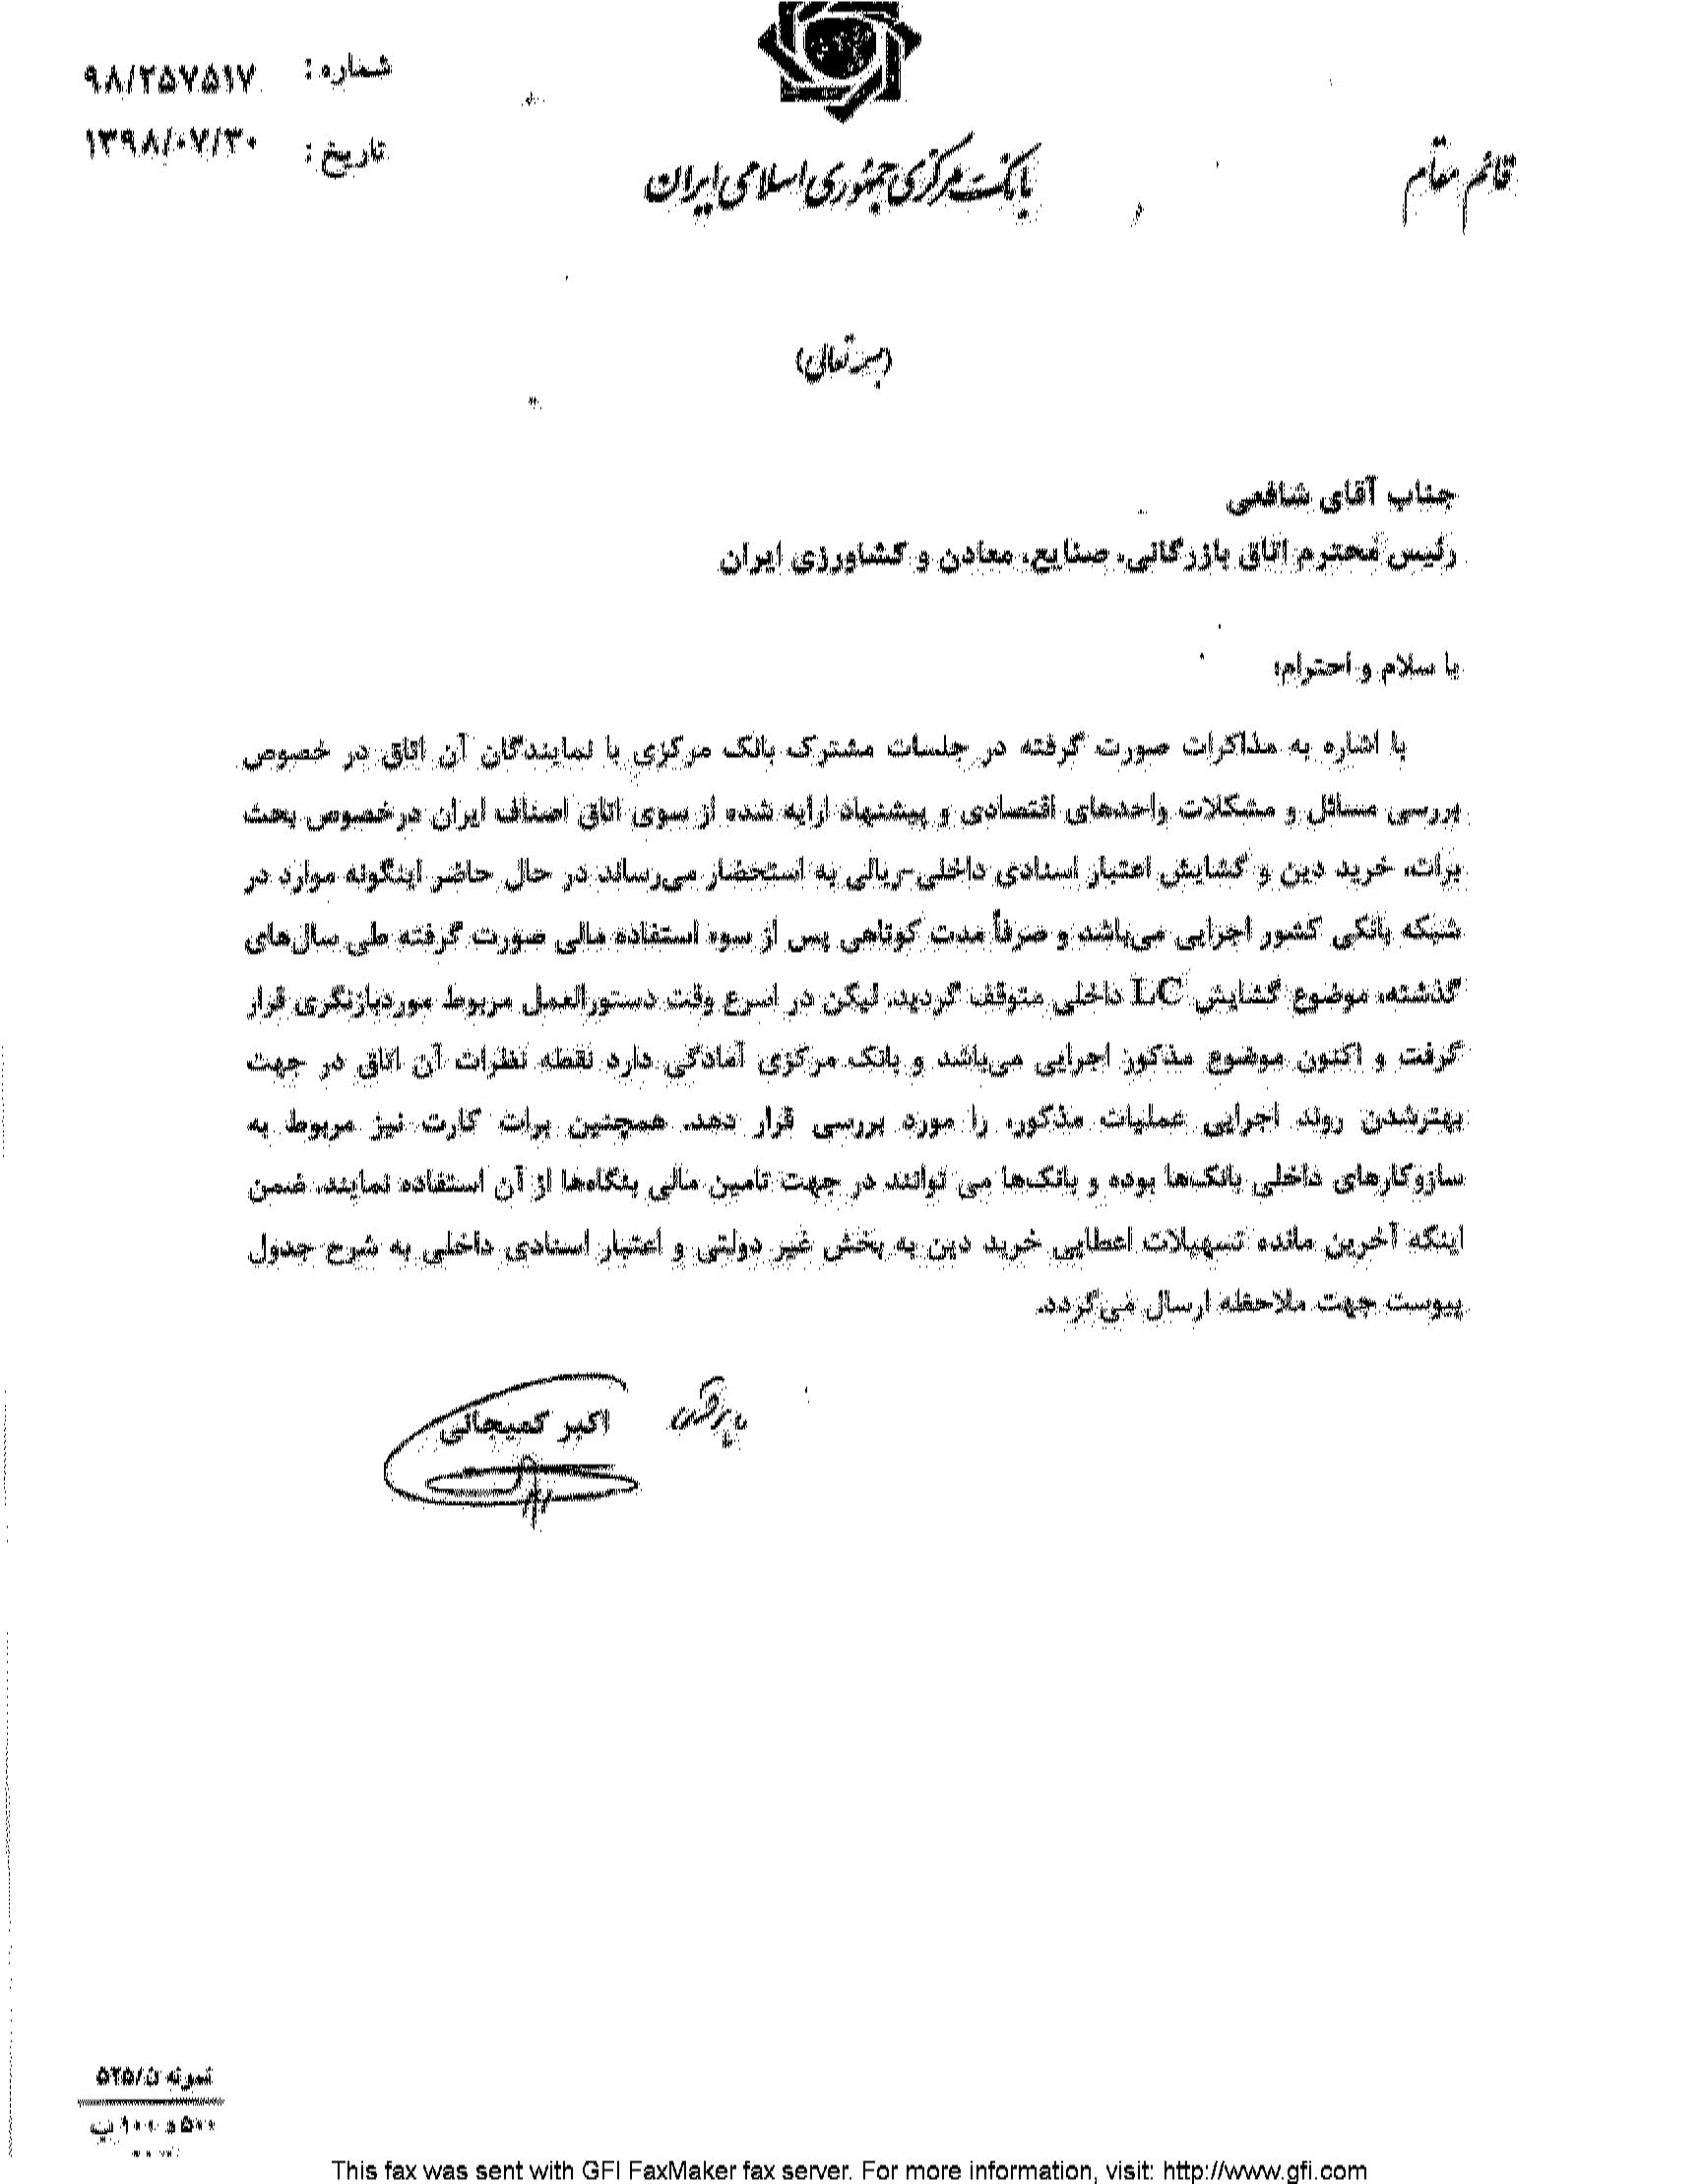 شماره: ۹۸/۲۵۷۵۱۷
تاریخ: ۱۳۹۸/۰۷/۳۰
بانک مرکزی جمهوری اسلامی ایران
قائم مقام
(بسمه تعالی)
جناب آقای شافعی
رئیس محترم اتاق بازرگانی، صنایع، معادن و کشاورزی ایران
با سلام و احترام؛
با اشاره به مذاکرات صورت گرفته در جلسات مشترک بانک مرکزی با نمایندگان آن اتاق در خصوص
بررسی مسائل و مشکلات واحدهای اقتصادی و پیشنهاد ارایه شده از سوی اتاق اصناف ایران درخصوص بحث
برات، خرید دین و گشایش اعتبار اسنادی داخلی-ریالی به استحضار می‌رساند در حال حاضر اینگونه موارد در
شبکه بانکی کشور اجرایی می‌باشد و صرفاً مدت کوتاهی پس از سوء استفاده مالی صورت گرفته طی سال‌های
گذشته، موضوع گشایش LC داخلی متوقف گردید، لیکن در اسرع وقت دستورالعمل مربوط موردبازنگری قرار
گرفت و اکنون موضوع مذکور اجرایی می‌باشد و بانک مرکزی آمادگی دارد نقطه نظرات آن اتاق در جهت
بهترشدن روند اجرایی عملیات مذکور، را مورد بررسی قرار دهد. همچنین برات کارت نیز مربوط به
سازوکارهای داخلی بانک‌ها بوده و بانک‌ها می توانند در جهت تامین مالی بنگاه‌ها از آن استفاده نمایند. ضمن
اینکه آخرین مانده تسهیلات اعطایی خرید دین به بخش غیر دولتی و اعتبار اسنادی داخلی به شرح جدول
پیوست جهت ملاحظه ارسال می‌گردد.
اکبر کمیجانی
نمونه ن/۵۲۵
This fax was sent with GFI FaxMaker fax server. For more information, visit: http://www.gfi.com